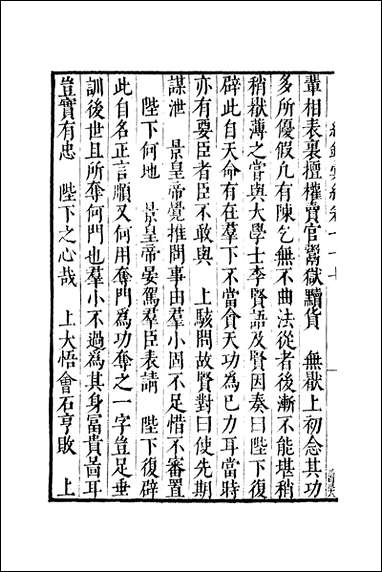 輩相表裏擅權賣官鬻獄黷貨　無猒上初念其功
多所優假凡有陳乞無不曲法從者後漸不能堪稍
稍猒薄之嘗與大學士李賢語及賢因奏曰陛下復
辟此自天命有在羣下不當貪天功為已力耳當時
亦有要臣者臣不敢與　上駭問故賢對曰使先期
謀泄　景皇帝覺推問事由羣小固不足惜不審置
陛下何地　景皇帝晏駕羣臣表請　陛下復辟
此自名正言順又何用奪門為功奪之一字豈足垂
訓後世且所奪何門也羣小不過為其身富貴啚耳
豈實有忠　陛下之心哉　上大悟會石亨敗　上